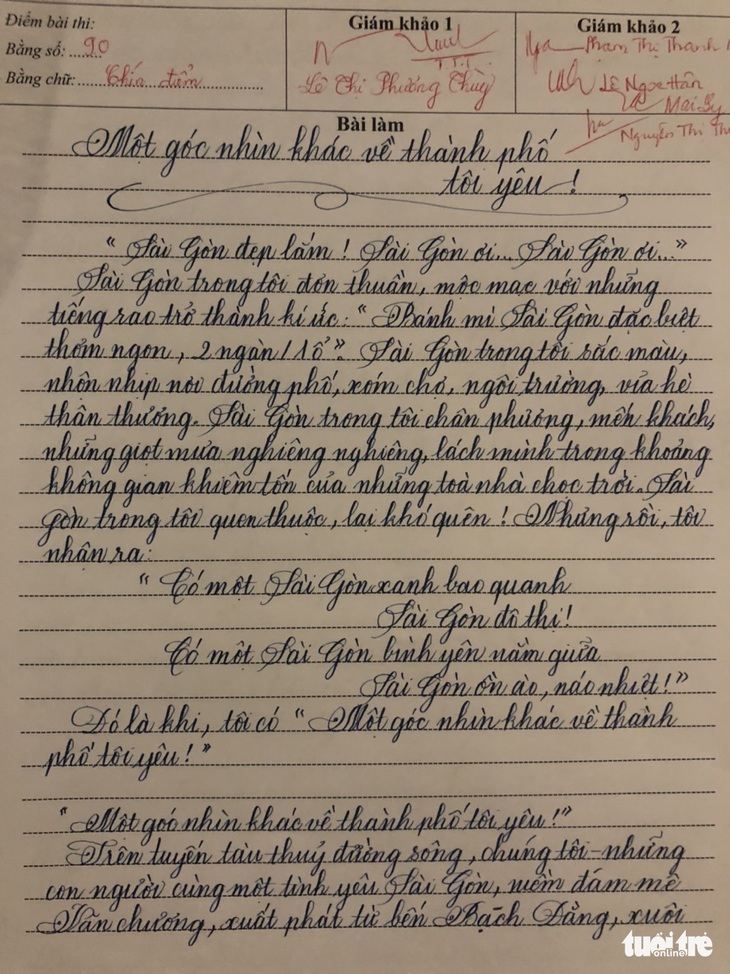 Điểm bài thi:
Bằng số: 90
Bằng chữ: Chín điểm
Giám khảo 1
Lê Thị Phương Thùy
Giám khảo 2
Phạm Thị Thanh
Lê Ngọc Hân
Nguyễn Thị
Bài làm
Một góc nhìn khác về thành phố
tôi yêu!
"Sài Gòn đẹp lắm! Sài Gòn ơi... Sài Gòn ơi..."
Sài Gòn trong tôi đơn thuần, mộc mạc với những
tiếng rao trở thành kí ức: "Bánh mì Sài Gòn đặc biệt
thơm ngon, 2 ngàn/1 ổ". Sài Gòn trong tôi sắc màu,
nhộn nhịp nơi đường phố, xóm chợ, ngôi trường, vỉa hè
thân thương. Sài Gòn trong tôi chân phương, mến khách,
những giọt mưa nghiêng nghiêng, lách mình trong khoảng
không gian khiêm tốn của những toà nhà chọc trời. Sài
Gòn trong tôi quen thuộc, lại khó quên! Nhưng rồi, tôi
nhận ra:
"Có một Sài Gòn xanh bao quanh
Sài Gòn đô thị!
Có một Sài Gòn bình yên nằm giữa
Sài Gòn ồn ào, náo nhiệt!"
Đó là khi, tôi có "Một góc nhìn khác về thành
phố tôi yêu!"
"Một góc nhìn khác về thành phố tôi yêu!"
Trên tuyến tàu thuỷ đường sông, chúng tôi - những
con người cùng một tình yêu Sài Gòn, niềm đam mê
Văn chương, xuất phát từ bến Bạch Đằng, xuôi
tuổi trẻ
online